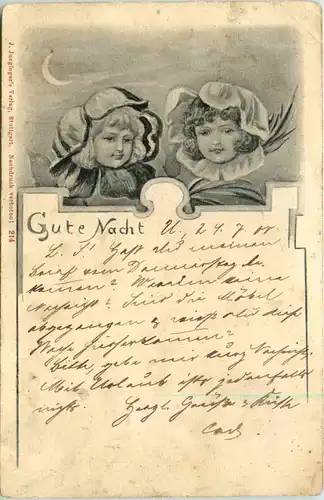 J. Junginger's Verlag, Stuttgart. Nachdruck verboten! 214
Gute Nacht
U., 24. 7. 00.
L. S! Hast du meinen
Brief vom Donnerstag be-
kommen? Warum keine
Nachricht? Sind die Möbel
abgegangen &
Bitte, gebe mir kurz Nachricht.
Mit Urlaub ists jedenfalls
nichts. Herzl. Grüße & Küsse
Carl